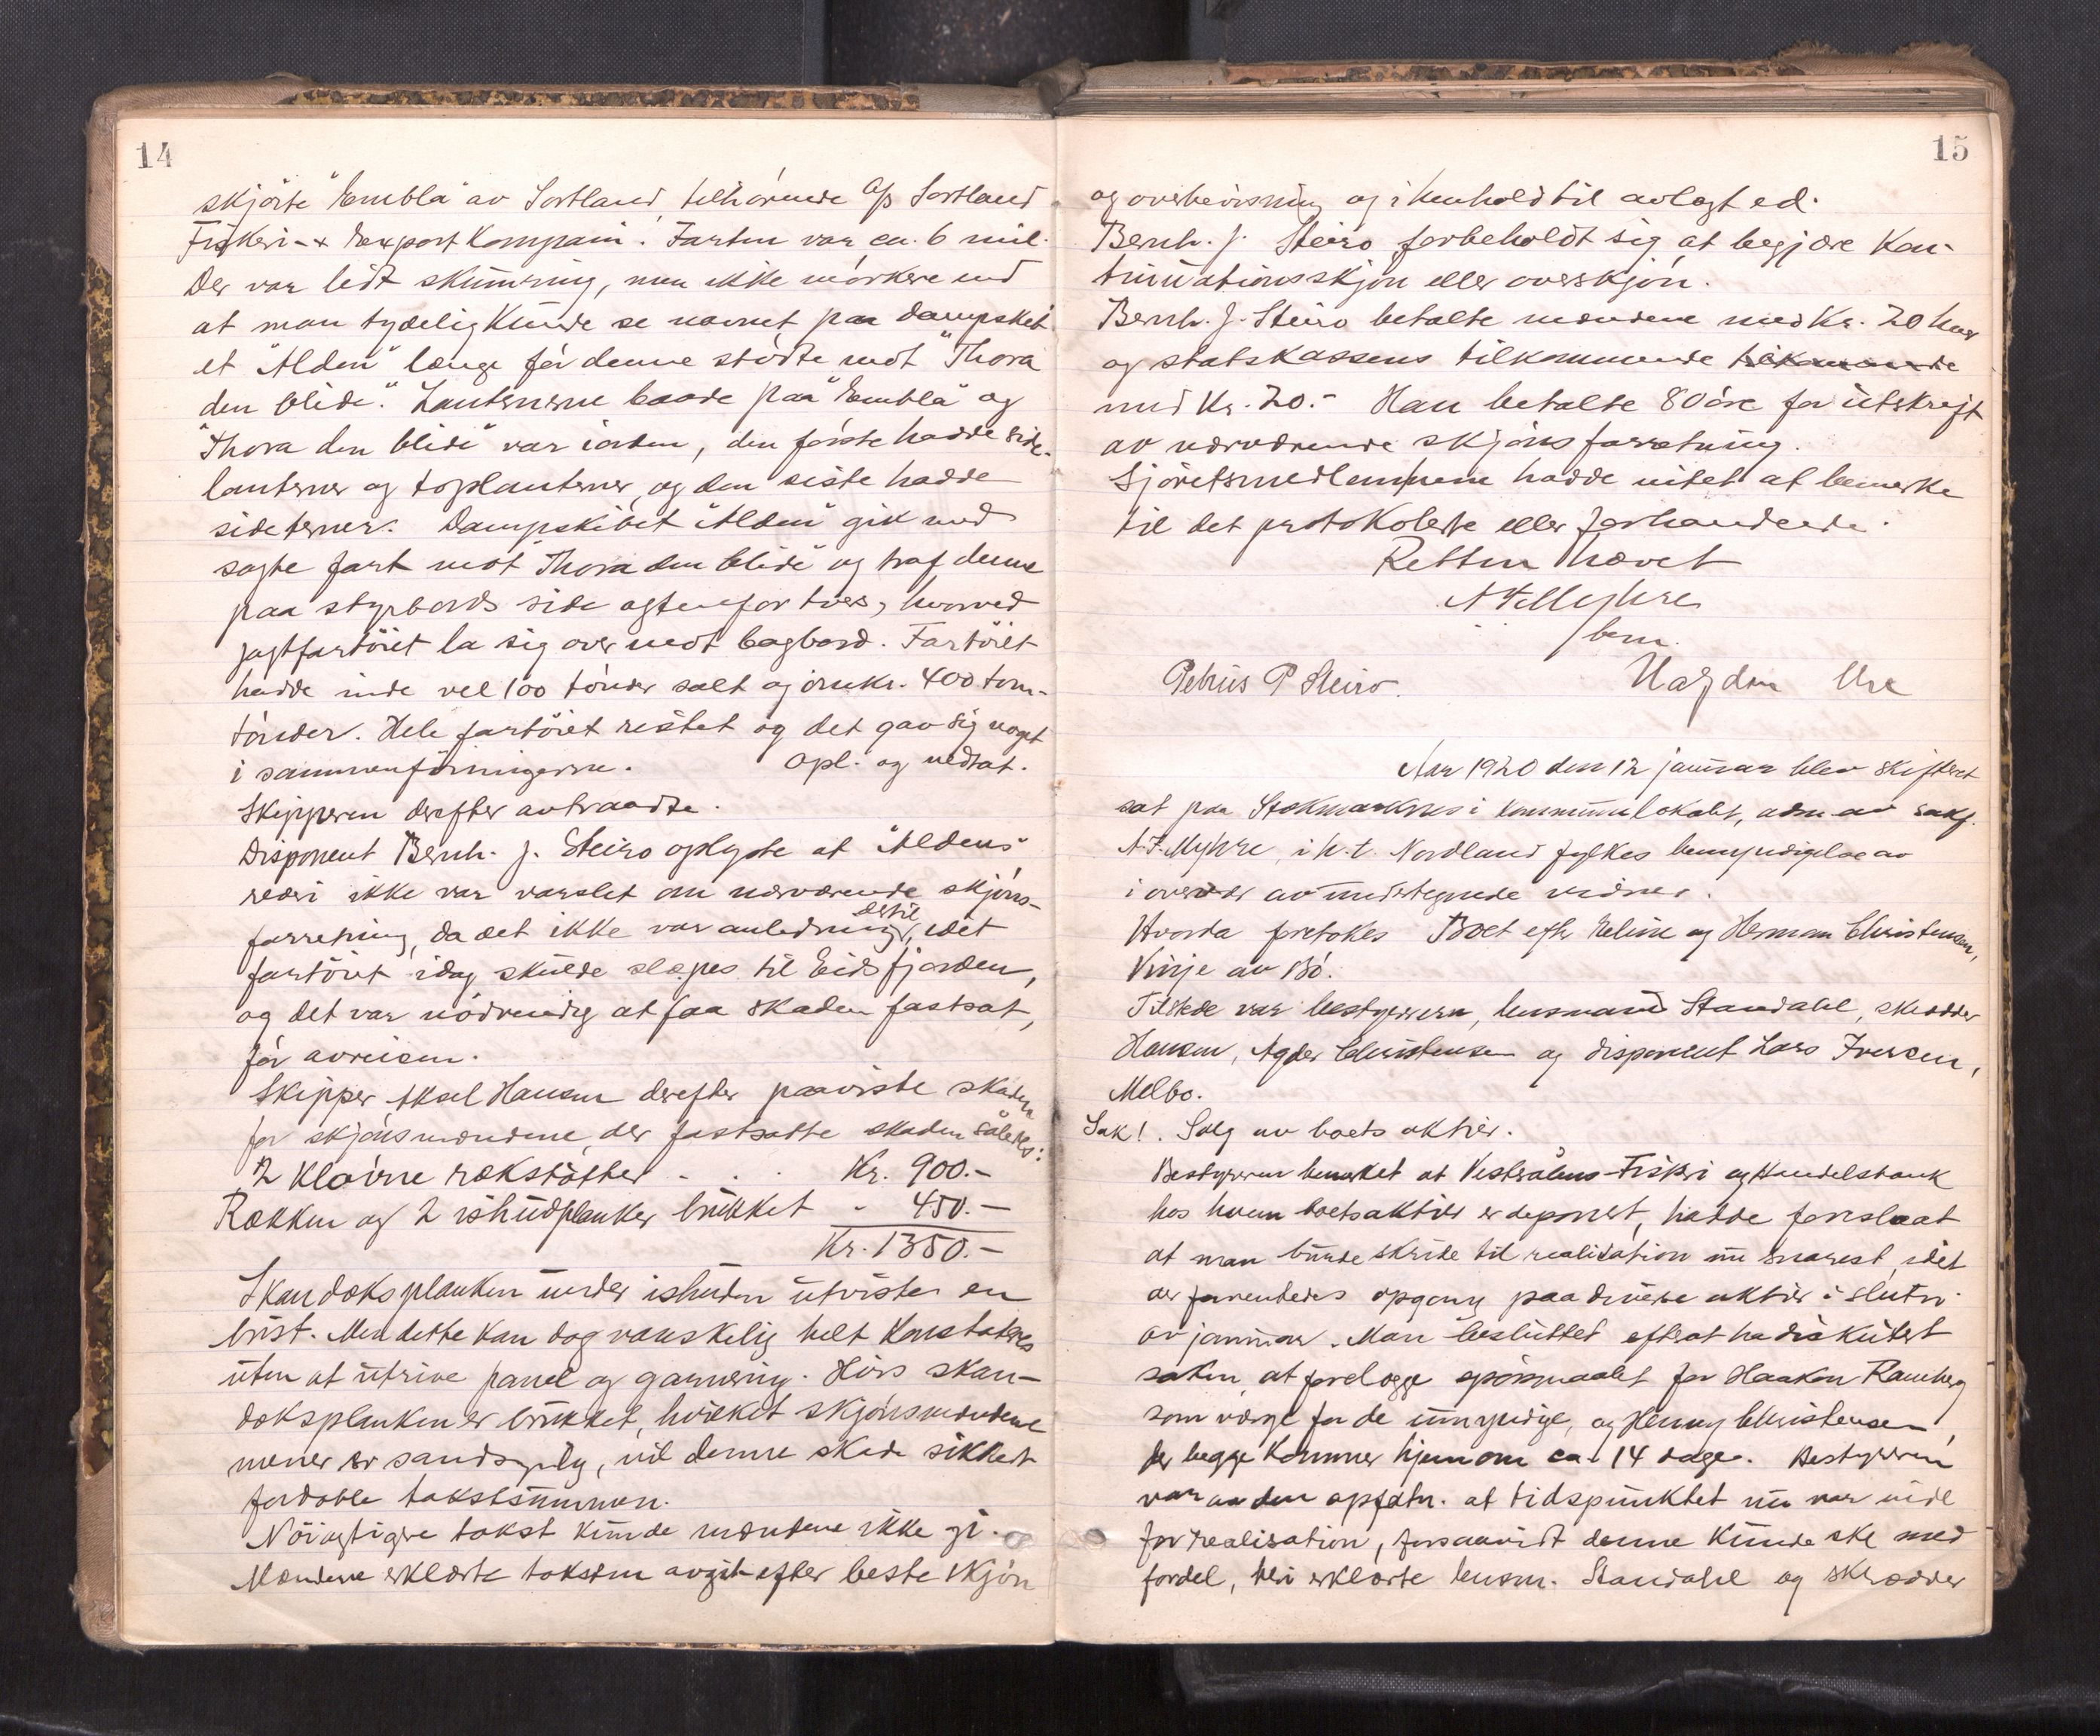 14
skjöite "Embla" av Sortland, tilhörende A/s Sortland
Fiskeri- & Export Kompani. Farten var ca. 6 mil.
Der var lidt skumring, men ikke mörkere end
at man tydelig kunde se navnet paa dampskib
et "Alden" længe för denne stödte mot "Thora
den blide." Lanternerne baade paa "Embla" og
"Thora den blide" var iorden, den förste hadde side-
lanterner og toplanterner, og den siste hadde
sideterner. Dampskibet "Alden" gik med
sagte fart mot "Thora den blide" og traf denne
paa styrbords side agtenfor tvers, hvorved
jagtfartöiet la sig over mot bagbord. Fartöiet
hadde inde vel 100 tönder salt og omkr. 400 tom-
tönder. Hele fartöiet ristet og det gav sig noget
i sammenföiningerne. Opl. og vedtat.
Skipperen derefter avtraadte.
Disponent Bernh. J. Steiro oplyste at "Aldens"
rederi ikke var varslet om nærværende skjöns-
forretning, da det ikke var anledning dertil, idet
fartöiet idag skulde slæpes til Eidsfjorden,
og det var nödvendig at faa skaden fastsat,
för avreisen.
Skipper Aksel Hansen derefter paaviste skaden
for skjönsmændene, der fastsatte skaden således:
2 klövne rækstötter - . . Kr. 900.-
Rækken og 2 ishudplanker brukket - 450.-
Kr. 1350.-
Skandæksplanken under ishuden utviste en
brist. Men dette kan dog vanskelig helt konstateres
uten at utrive panel og garnering. Hvis skan-
dæksplanken er brukket, hvilket skjönsmændene
mener er sandsynlig, vil denne skade sikkert
fordoble takstsummen.
Nöiagtigere takst kunde mændene ikke gi.
Mændene erklærte taksten avgit efter beste skjön
15
og overbevisning og i henhold til avlagt ed.
Bernh. J. Steiro forbeholdt sig at begjære Kon-
tinuationsskjön eller overskjön.
Bernh. J. Steiro betalte mændene med Kr. 20 hver
og statskassens tilkommende tilkommende
med Kr. 20.- Han betalte 80 öre for utskrift
av nærværende skjönsforretning.
Sjöretsmedlemmene hadde intet at bemerke
til det protokolerte eller forhandlede.
Retten hævet
A F Myhre
bem.
Petrus P Steiro. Hagdon Ure
Aar 1920 den 12 januar blev skifteret
sat paa Stokmarknes i kommunelokalet, adm. av sakf.
A. F. Myhre, i h. t. Nordland fylkes bemyndigelse av
i overvær av undertegnede vidner.
Hvorda foretokes Boet efter Eline og Herman Christensen,
Vinje av Bö.
Tilstede var bestyreren, lensmand Standahl, skrædder
Hansen, Agder Christensen og disponent Lars Iversen,
Melbo.
Sak 1. Salg av boets aktier.
Bestyreren bemerket at Vesterålens Fiskeri og Handelsbank
hos hvem boets aktier er deponert, hadde foreslaat
at man burde skride til realisation nu snarest, idet
der forventedes opgang paa diverse aktier i slutn.
av januar. Man besluttet efterat ha diskutert
saken, at forelægge spörsmaalet for Haakon Ramberg
som værge for de umyndige, og Henny Christensen,
der begge kommer hjem om ca. 14 dage. Bestyreren
var av den opfatn. at tidspunktet nu var inde
for realisation, forsaavidt denne kunde ske med
fordel, heri erklærte lensm. Standahl og skrædder